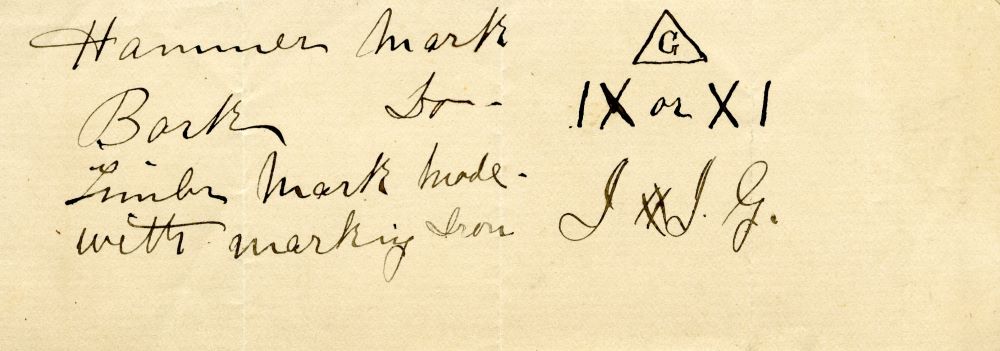 Hammer Mark G
Bark Do - IX or XI
Timber Mark Made -
with marking Iron J X J. G.